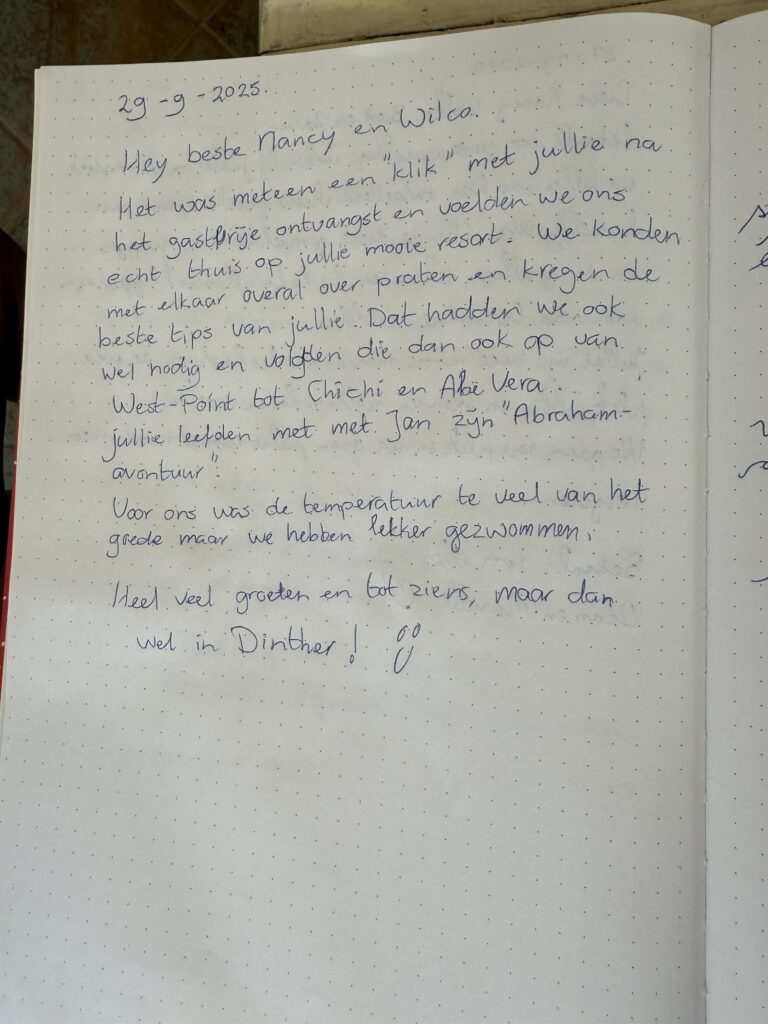 29-9-2025.
Hey beste Nancy en Wilco.
Het was meteen een "klik" met jullie na
het gastfrije ontvangst en voelden we ons
echt thuis op jullie mooie resort. We konden
met elkaar overal over praten en kregen de
beste tips van jullie. Dat hadden we ook
wel nodig en volgden die dan ook op van
West-Point tot Chichi en Aloë Vera.
jullie leefden met met Jan zijn "Abraham-
avontuur".
Voor ons was de temperatuur te veel van het
goede maar we hebben lekker gezwommen.
Heel veel groeten en tot ziens, maar dan
wel in Dinther!